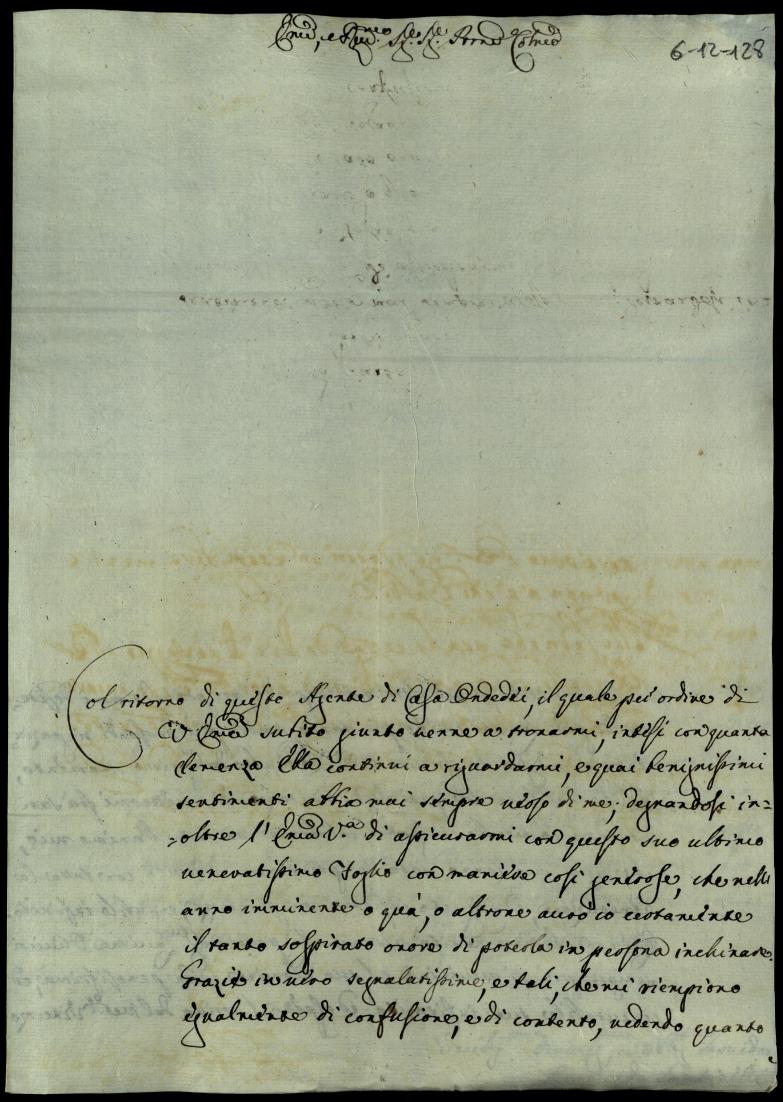 Emõ, e Rmõ Sig.r Sig.r Pñe Colmõ
6-12-128
Col ritorno di questo Agente di Casa Ondedei, il quale per ordine di
V Emã subito giunto venne a trovarmi, intesi con quanta
clemenza Ella continui a riguardarmi, e quai benignissimi
sentimenti abbia mai sempre verso di me; degnandosi in=
=oltre l'Emã V.a di assicurarmi con questo suo ultimo
veneratissimo Foglio con maniere così generose, che nell'
anno imminente o quà, o altrove avrò io certamente
il tanto sospirato onore di poterla in persona inchinare.
Grazie in vero segnalatissime, e tali, che mi riempiono
egualmente di confusione, e di contento, vedendo quanto